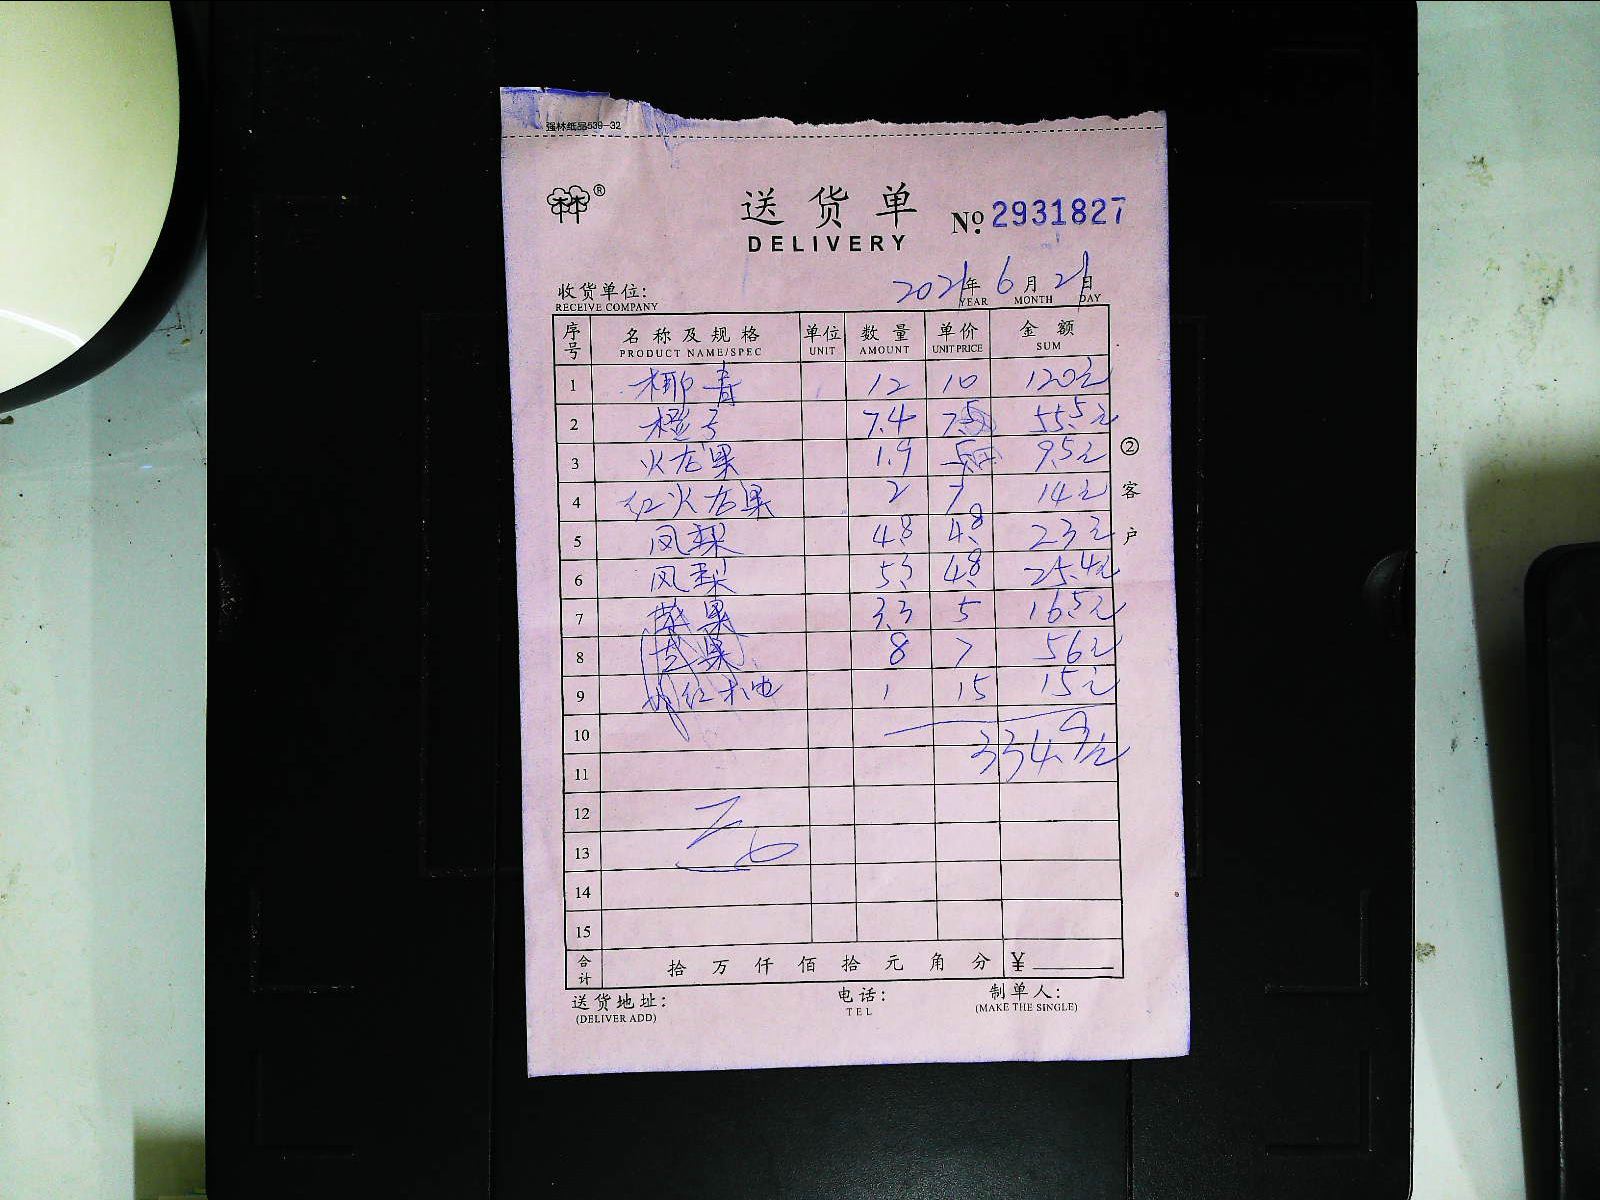 强林纸品539-32
林®
送货单 No. 2931827
DELIVERY
收货单位: 2021年6月21日
RECEIVE COMPANY YEAR MONTH DAY
序号 名称及规格 单位 数量 单价 金额
PRODUCT NAME/SPEC UNIT AMOUNT UNIT PRICE SUM
1 椰青 12 10 120元
2 橙子 7.4 7.5 55.5元
3 火龙果 1.9 5 9.5元
4 红火龙果 2 7 14元
5 凤梨 4.8 4.8 23元
6 凤梨 5.3 4.8 25.4元
7 苹果 3.3 5 16.5元
8 芒果 8 7 56元
9 红 1 15 15元
10
334.9元
11
12
13
14
15
合计 拾 万 仟 佰 拾 元 角 分 ¥
送货地址: 电话: 制单人:
(DELIVER ADD) TEL (MAKE THE SINGLE)
② 客户